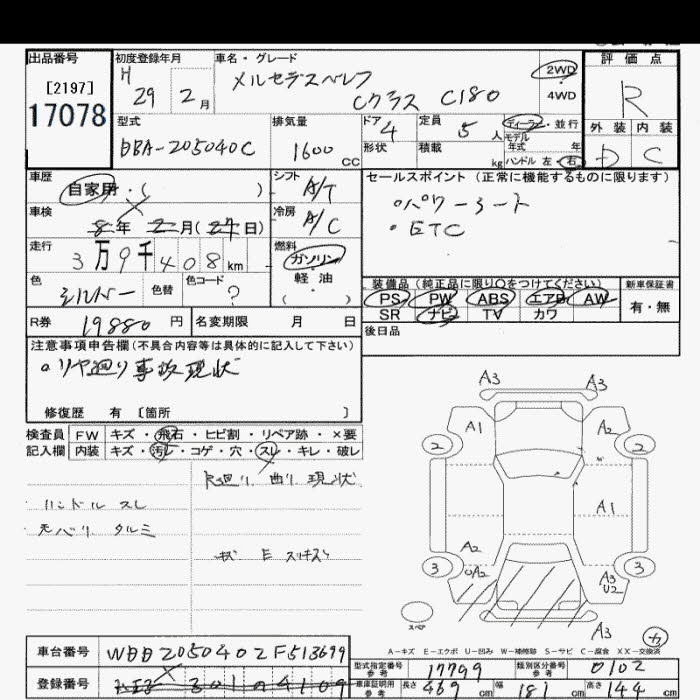 出品番号
[2197]
17078
初度登録年月
H 29 年 2 月
車名・グレード
メルセデスベンツ
Cクラス C180
2WD
4WD
評価点
R
外装 内装
D C
型式
DBA-205040C
排気量
1600 cc
ドア 4
形状
定員 5 人
積載 kg
ディーラー・並行
モデル
年式 年
ハンドル 左・右
車歴
自家用・( )
車検
8年 2月(27日)
走行
3万9千408km
色
シルバー
色替
色コード ?
シフト
A/T
冷房
A/C
燃料
ガソリン
軽油
( )
セールスポイント(正常に機能するものに限ります)
・パワーシート
・ETC
装備品(純正品に限り○をつけてください)
PS PW ABS エアB AW
SR ナビ TV カワ
新車保証書
有・無
後日品
R券 19880 円
名変期限 月 日
注意事項申告欄(不具合内容等は具体的に記入して下さい)
・リヤ廻り事故現状
修復歴 有 〔箇所 〕
検査員 FW キズ・飛石・ヒビ割・リペア跡・×要
記入欄 内装 キズ・汚レ・コゲ・穴・スレ・キレ・破レ
R廻り 曲り 現状
ハンドル スレ
天バリ タルミ
A3 A3
A1 A2
2 2
A1
A2
3 3
UA2 A3
U2
スペア
A3
A-キズ E-エクボ U-凹み W-補修跡 S-サビ C-腐食 XX-交換済
車台番号 WDD2050402F513679
登録番号
型式指定番号 参考 17799
類別区分番号 参考 0102
車庫証明用 参考 長さ 469 cm 幅 181 cm 高さ 144 cm